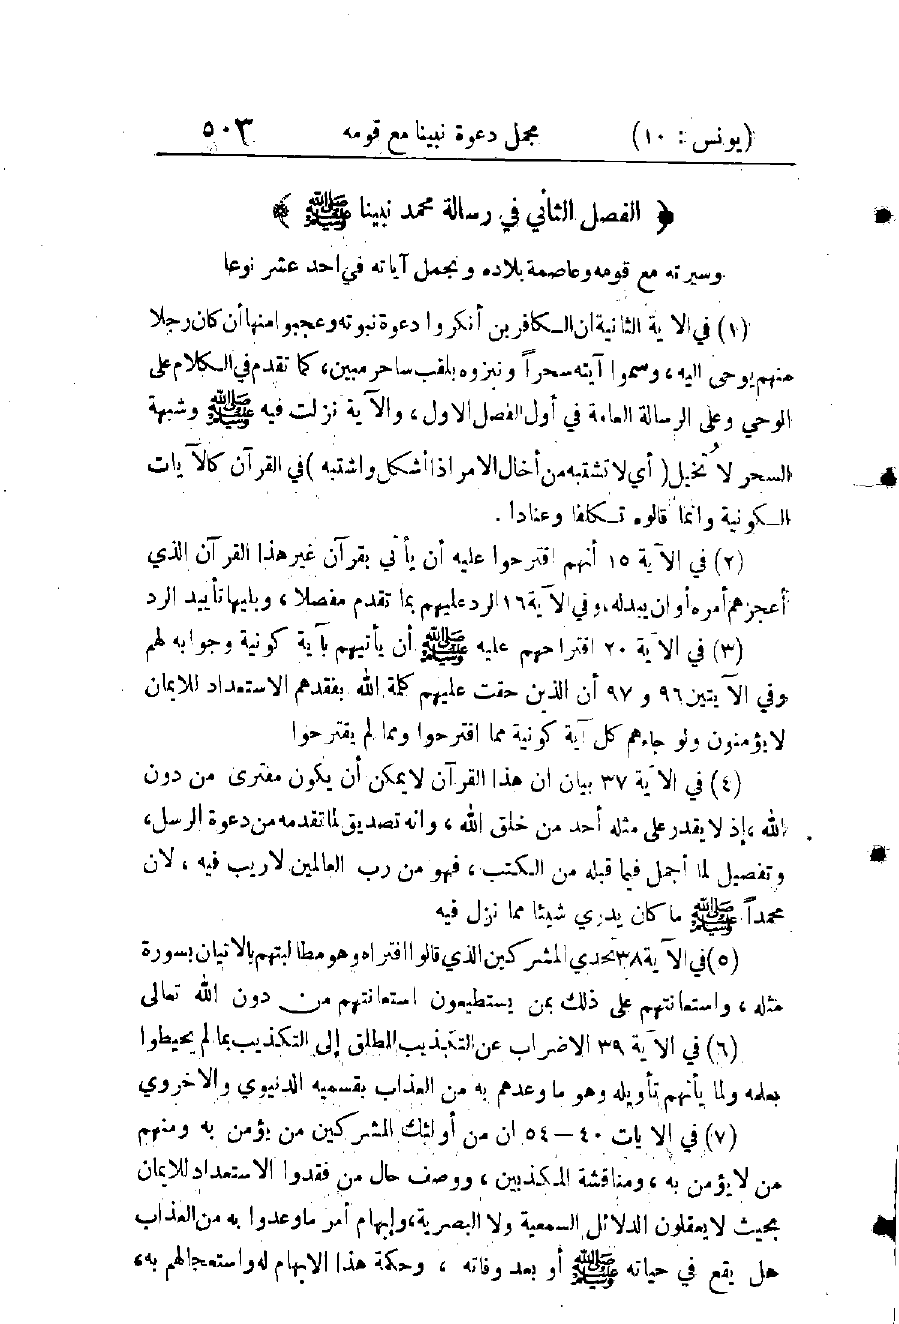 (يونس : ١٠) مجمل دعوة نبينا مع قومه ٥٠٣
﴿ الفصل الثاني في رسالة محمد نبينا ﷺ ﴾
وسيرته مع قومه وعاصمة بلاده ونجمل آياته في احد عشر نوعا
(١) في الآية الثانية ان الكافرين أنكروا دعوة نبوته وعجبوا منها أن كان رجلا
منهم يوحى اليه ، وسموا آيته سحراً ونبزوه بلقب ساحر مبين، كما تقدم في الكلام على
الوحي وعلى الرسالة العامة في أول الفصل الاول ، والآية نزلت فيه ﷺ وشبهة
السحر لا تُخيل ( أي لا تشتبه من أخال الامر اذا أشكل واشتبه ) في القرآن كالآيات
الكونية وانما قالوه تكلفا وعنادا .
(٢) في الآية ١٥ أنهم اقترحوا عليه أن يأتي بقرآن غير هذا القرآن الذي
أعجزهم أمره أو ان يبدله، وفي الآية ١٦ الرد عليهم بما تقدم مفصلا ، ويليها تأييد الرد
(٣) في الآية ٢٠ اقتراحهم عليه ﷺ أن يأتيهم بآية كونية وجوابه لهم
وفي الآيتين ٩٦ و ٩٧ أن الذين حقت عليهم كلمة الله بفقدهم الاستعداد للايمان
لا يؤمنون ولو جاءهم كل آية كونية مما اقترحوا ومما لم يقترحوا
(٤) في الآية ٣٧ بيان ان هذا القرآن لا يمكن أن يكون مفترى من دون
الله ، إذ لا يقدر على مثله أحد من خلق الله ، وانه تصديق لما تقدمه من دعوة الرسل،
وتفصيل لما أجمل فيما قبله من الكتب ، فهو من رب العالمين لا ريب فيه ، لان
محمداً ﷺ ما كان يدري شيئا مما نزل فيه
(٥) في الآية ٣٨ تحدي المشركين الذي قالوا افتراه وهو مطالبتهم بالاتيان بسورة
مثله ، واستعانتهم على ذلك بمن يستطيعون استعانتهم من دون الله تعالى
(٦) في الآية ٣٩ الاضراب عن التكذيب المطلق إلى التكذيب بما لم يحيطوا
بعلمه ولما يأتهم تأويله وهو ما وعدهم به من العذاب بقسميه الدنيوي والاخروي
(٧) في الايات ٤٠ – ٥٤ ان من أولئك المشركين من يؤمن به ومنهم
من لا يؤمن به ، ومناقشة المكذبين ، ووصف حال من فقدوا الاستعداد للايمان
بحيث لا يعقلون الدلائل السمعية ولا البصرية، وإبهام أمر ما وعدوا به من العذاب
هل يقع في حياته ﷺ أو بعد وفاته ، وحكمة هذا الابهام له واستعجالهم به،